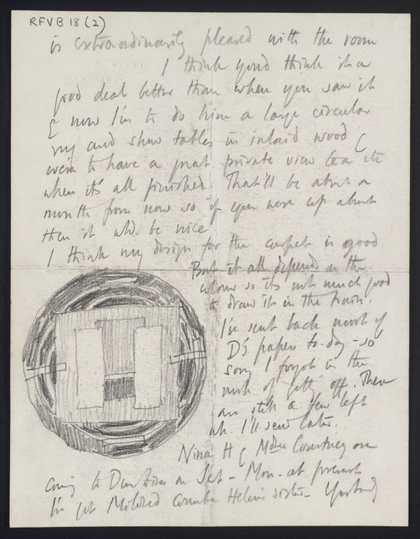 RFVB 18 (2)
is extraordinarily pleased with the room
I think you'd think it a
good deal better than when you saw it
& now I'm to do him a large circular
rug and show tables in inlaid wood &
we're to have a great private view tea etc
when it's all finished. That'll be about a
month from now so if you were up about
then it wld. be nice
I think my design for the carpet is good
But it all depends on the
colour so it's not much good
to draw it in the
I've sent back most of
D's papers to-day - so
sorry I forgot in the
rush of gett. off. There
are still a few left
wh. I'll send later.
Nina H & Mdme Courtney are
coming to on Sat - Mon - at present
I've got Mildred Helen's sister -